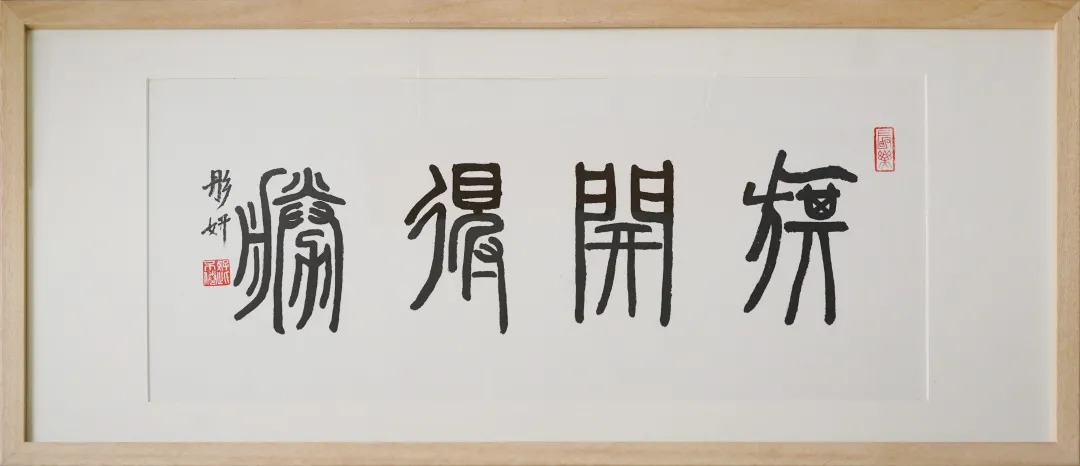 旗開得勝
彤妍